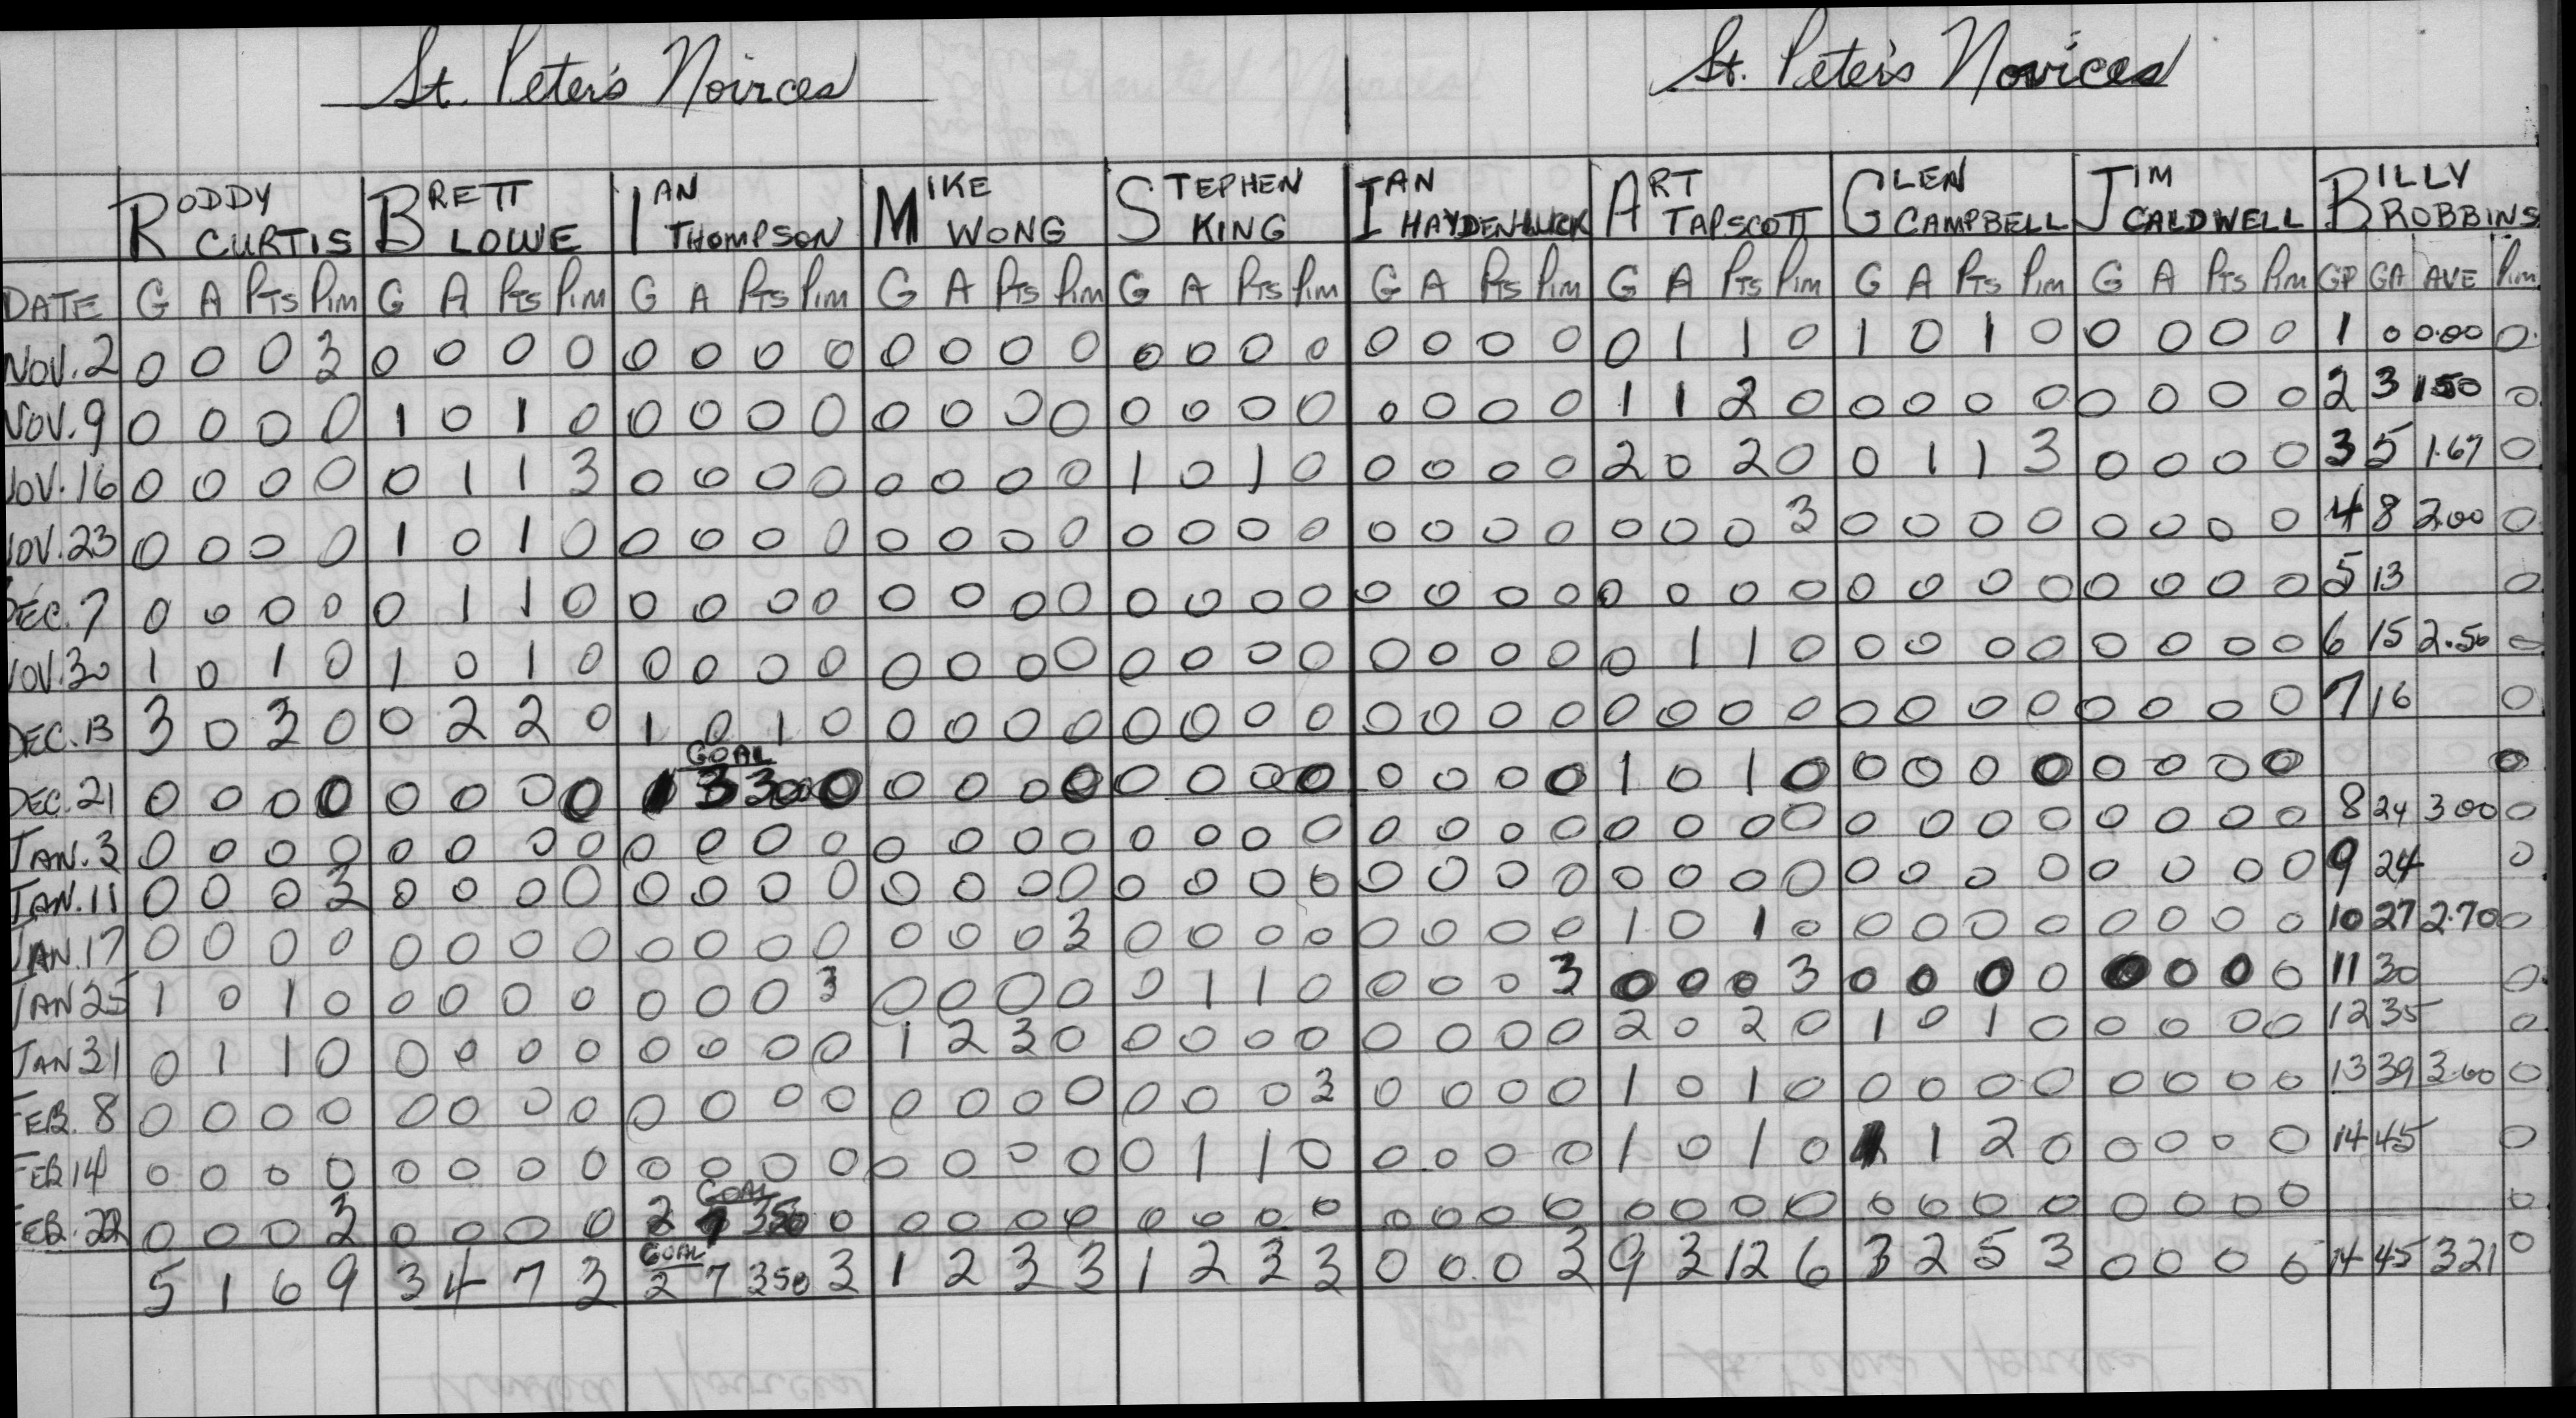 St. Peter's Noirces St. Peter's Novices
RODDY CURTIS BRETT LOWE IAN THOMPSON MIKE WONG STEPHEN KING IAN HAYDEN-LUCK ART TAPSCOTT GLEN CAMPBELL JIM CALDWELL BILLY ROBBINS
DATE G A PTS PIM G A PTS PIM G A PTS PIM G A PTS PIM G A PTS PIM G A PTS PIM G A PTS PIM G A PTS PIM G A PTS PIM GP GA AVE PIM
NOV. 2 0 0 0 3 0 0 0 0 0 0 0 0 0 0 0 0 0 0 0 0 0 0 0 0 0 1 1 0 1 0 1 0 0 0 0 0 1 0 0.00 0
NOV. 9 0 0 0 0 1 0 1 0 0 0 0 0 0 0 0 0 0 0 0 0 0 0 0 0 1 1 2 0 0 0 0 0 0 0 0 0 2 3 1.50 0
NOV. 16 0 0 0 0 0 1 1 3 0 0 0 0 0 0 0 0 1 0 1 0 0 0 0 0 2 0 2 0 0 1 1 3 0 0 0 0 3 5 1.67 0
NOV. 23 0 0 0 0 1 0 1 0 0 0 0 0 0 0 0 0 0 0 0 0 0 0 0 0 0 0 0 3 0 0 0 0 0 0 0 0 4 8 2.00 0
DEC. 7 0 0 0 0 0 1 1 0 0 0 0 0 0 0 0 0 0 0 0 0 0 0 0 0 0 0 0 0 0 0 0 0 0 0 0 0 5 13 0
NOV. 30 1 0 1 0 1 0 1 0 0 0 0 0 0 0 0 0 0 0 0 0 0 0 0 0 0 1 1 0 0 0 0 0 0 0 0 0 6 15 2.50 0
DEC. 13 3 0 3 0 0 2 2 0 1 0 1 0 0 0 0 0 0 0 0 0 0 0 0 0 0 0 0 0 0 0 0 0 0 0 0 0 7 16 0
GOAL
DEC. 21 0 0 0 0 0 0 0 0 1 3 300 0 0 0 0 0 0 0 0 0 0 0 0 0 1 0 1 0 0 0 0 0 0 0 0 0 0
JAN. 3 0 0 0 0 0 0 0 0 0 0 0 0 0 0 0 0 0 0 0 0 0 0 0 0 0 0 0 0 0 0 0 0 0 0 0 0 8 24 3 00 0
JAN. 11 0 0 0 3 0 0 0 0 0 0 0 0 0 0 0 0 0 0 0 0 0 0 0 0 0 0 0 0 0 0 0 0 0 0 0 0 9 24 0
JAN. 17 0 0 0 0 0 0 0 0 0 0 0 0 0 0 0 3 0 0 0 0 0 0 0 0 1 0 1 0 0 0 0 0 0 0 0 0 10 27 2.70 0
JAN 25 1 0 1 0 0 0 0 0 0 0 0 3 0 0 0 0 0 1 1 0 0 0 0 3 0 0 0 3 0 0 0 0 0 0 0 0 11 30 0
JAN 31 0 1 1 0 0 0 0 0 0 0 0 0 1 2 3 0 0 0 0 0 0 0 0 0 2 0 2 0 1 0 1 0 0 0 0 0 12 35 0
FEB. 8 0 0 0 0 0 0 0 0 0 0 0 0 0 0 0 0 0 0 0 3 0 0 0 0 1 0 1 0 0 0 0 0 0 0 0 0 13 39 3.00 0
FEB 14 0 0 0 0 0 0 0 0 0 0 0 0 0 0 0 0 0 1 1 0 0 0 0 0 1 0 1 0 1 1 2 0 0 0 0 0 14 45 0
GOAL
FEB. 22 0 0 0 3 0 0 0 0 2 7 350 0 0 0 0 0 0 0 0 0 0 0 0 0 0 0 0 0 0 0 0 0 0 0 0 0 0
GOAL
5 1 6 9 3 4 7 3 2 7 350 3 1 2 3 3 1 2 3 3 0 0 0 3 9 3 12 6 3 2 5 3 0 0 0 0 14 45 321 0